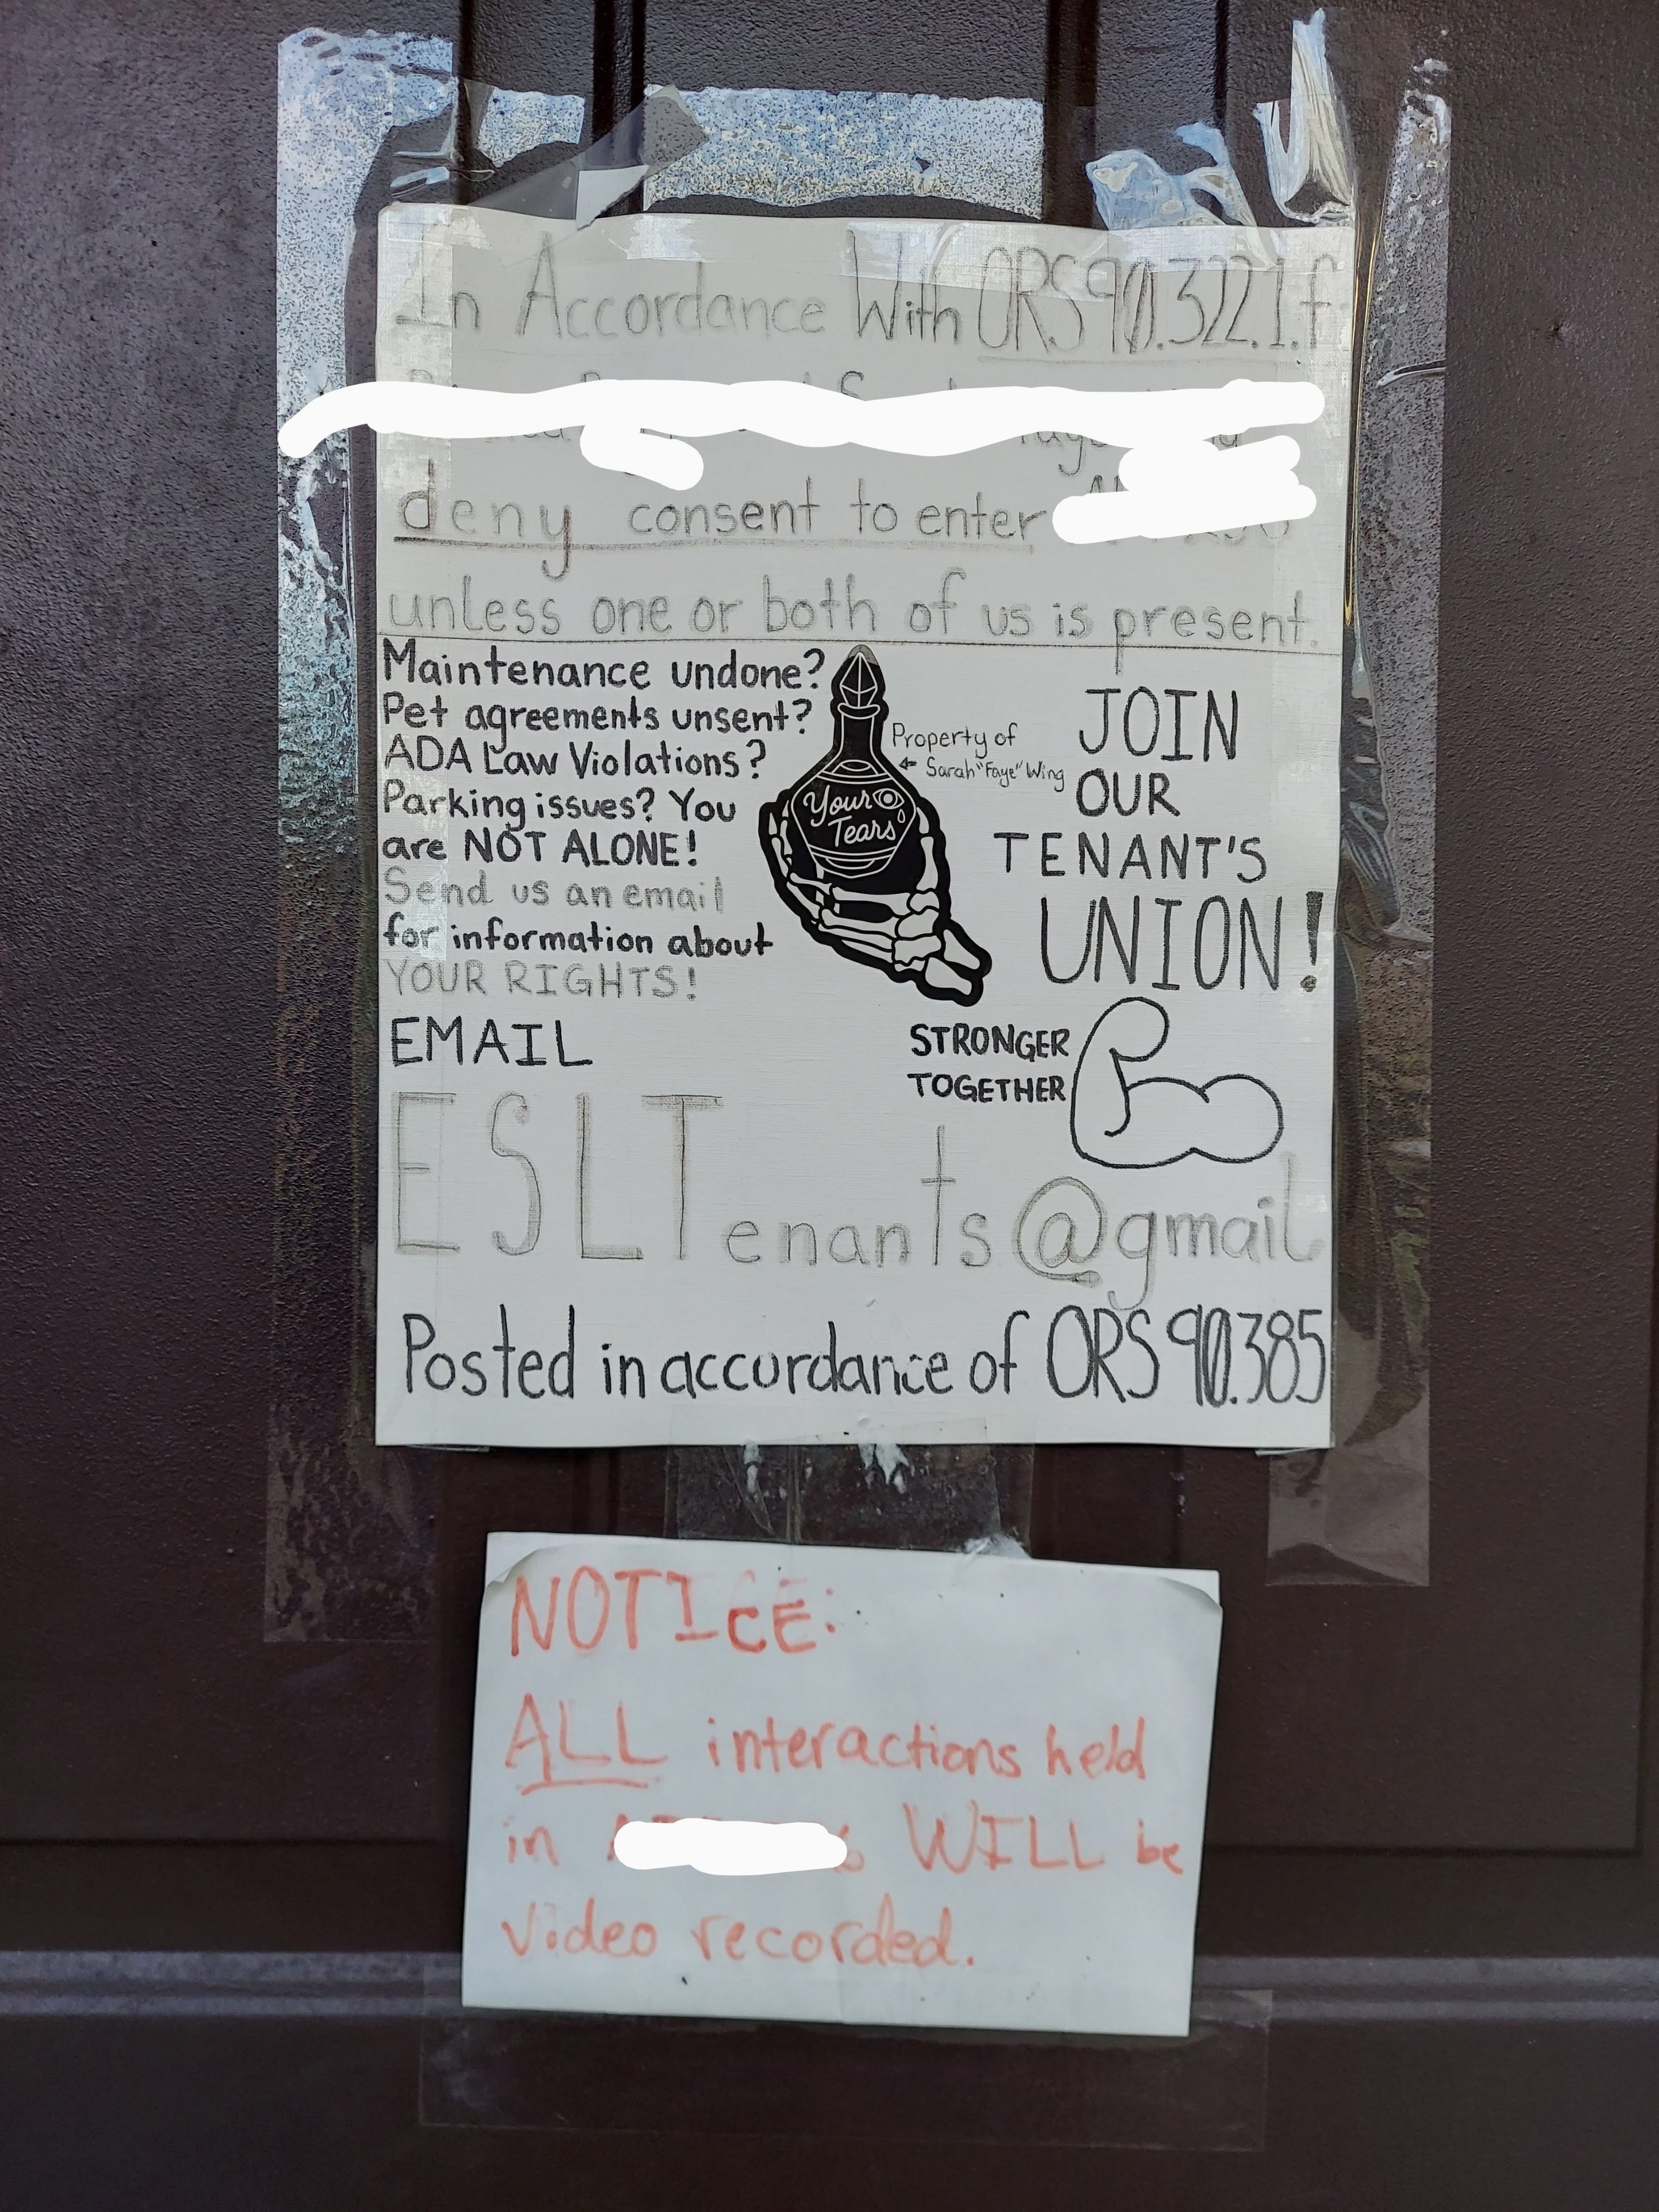 In Accordance With ORS 90.322.1.f
deny consent to enter
unless one or both of us is present.
Maintenance undone?
Pet agreements unsent?
ADA Law Violations?
Parking issues? You
are NOT ALONE!
Send us an email
for information about
YOUR RIGHTS!
EMAIL
Property of
← Sarah "Faye" Wing
Your
Tears
JOIN
OUR
TENANT'S
UNION!
STRONGER
TOGETHER
ESLTenants@gmail
Posted in accurdance of ORS 90.385
NOTICE:
ALL interactions held
in
WILL be
video recorded.